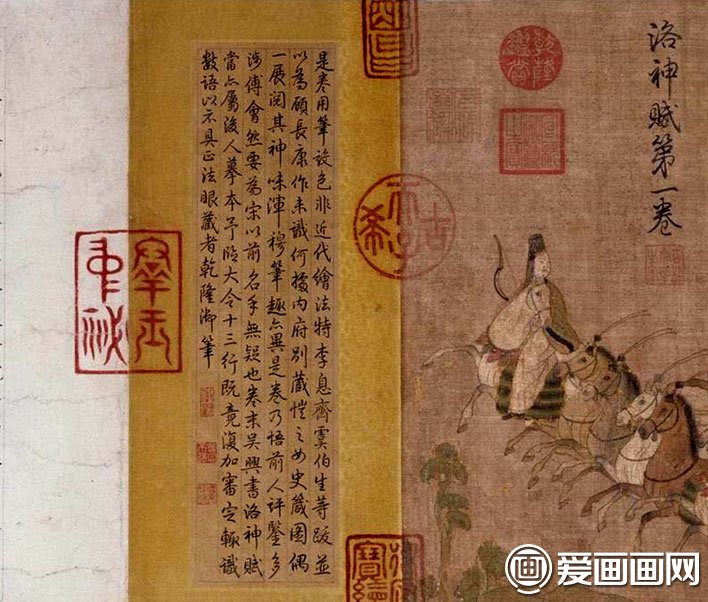 洛神賦第一卷
乾隆鑒賞
古希天子
是卷用筆設色非近代繪法特李息齋虞伯生等跋並
以為顧長康作未識何據內府別藏愷之女史箴圖偶
一展閱其神味渾穆筆趣亦異是卷乃悟前人評鑒多
涉傅會然要為宋以前名手無疑也卷末吳興書洛神賦
當亦屬後人摹本予臨大令十三行既竟復加審定輒識
數語以示具正法眼藏者乾隆御筆
画 爱画画网